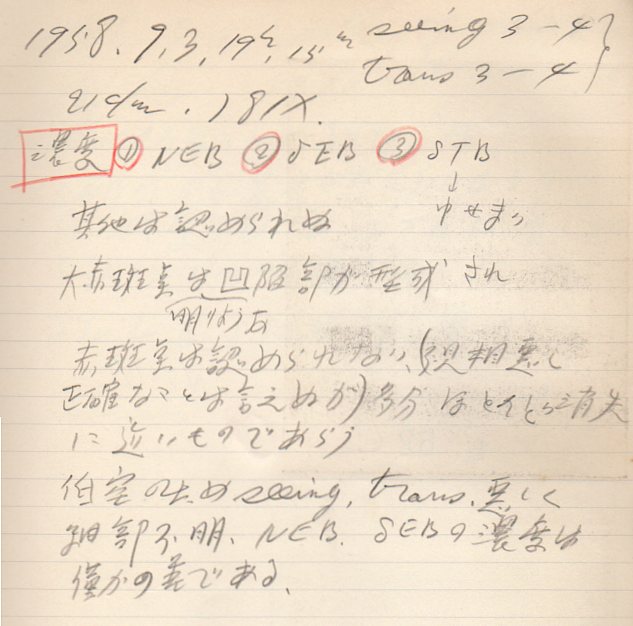 1958. 9. 3, 19h, 15m seeing 3-4
trans 3-4
21cm. 181X.
濃度 ① NEB ② SEB ③ STB
↓
ゆせまり
其他は認められぬ
大赤斑点は凹陥部が型成され
明りような
赤斑点は認められない(気相悪く
正確なことは言えぬが)多分ほとんど消失
に近いものであらう
低空のため seeing, trans. 悪しく
細部不明、NEB. SEBの濃度は
僅かの差である、